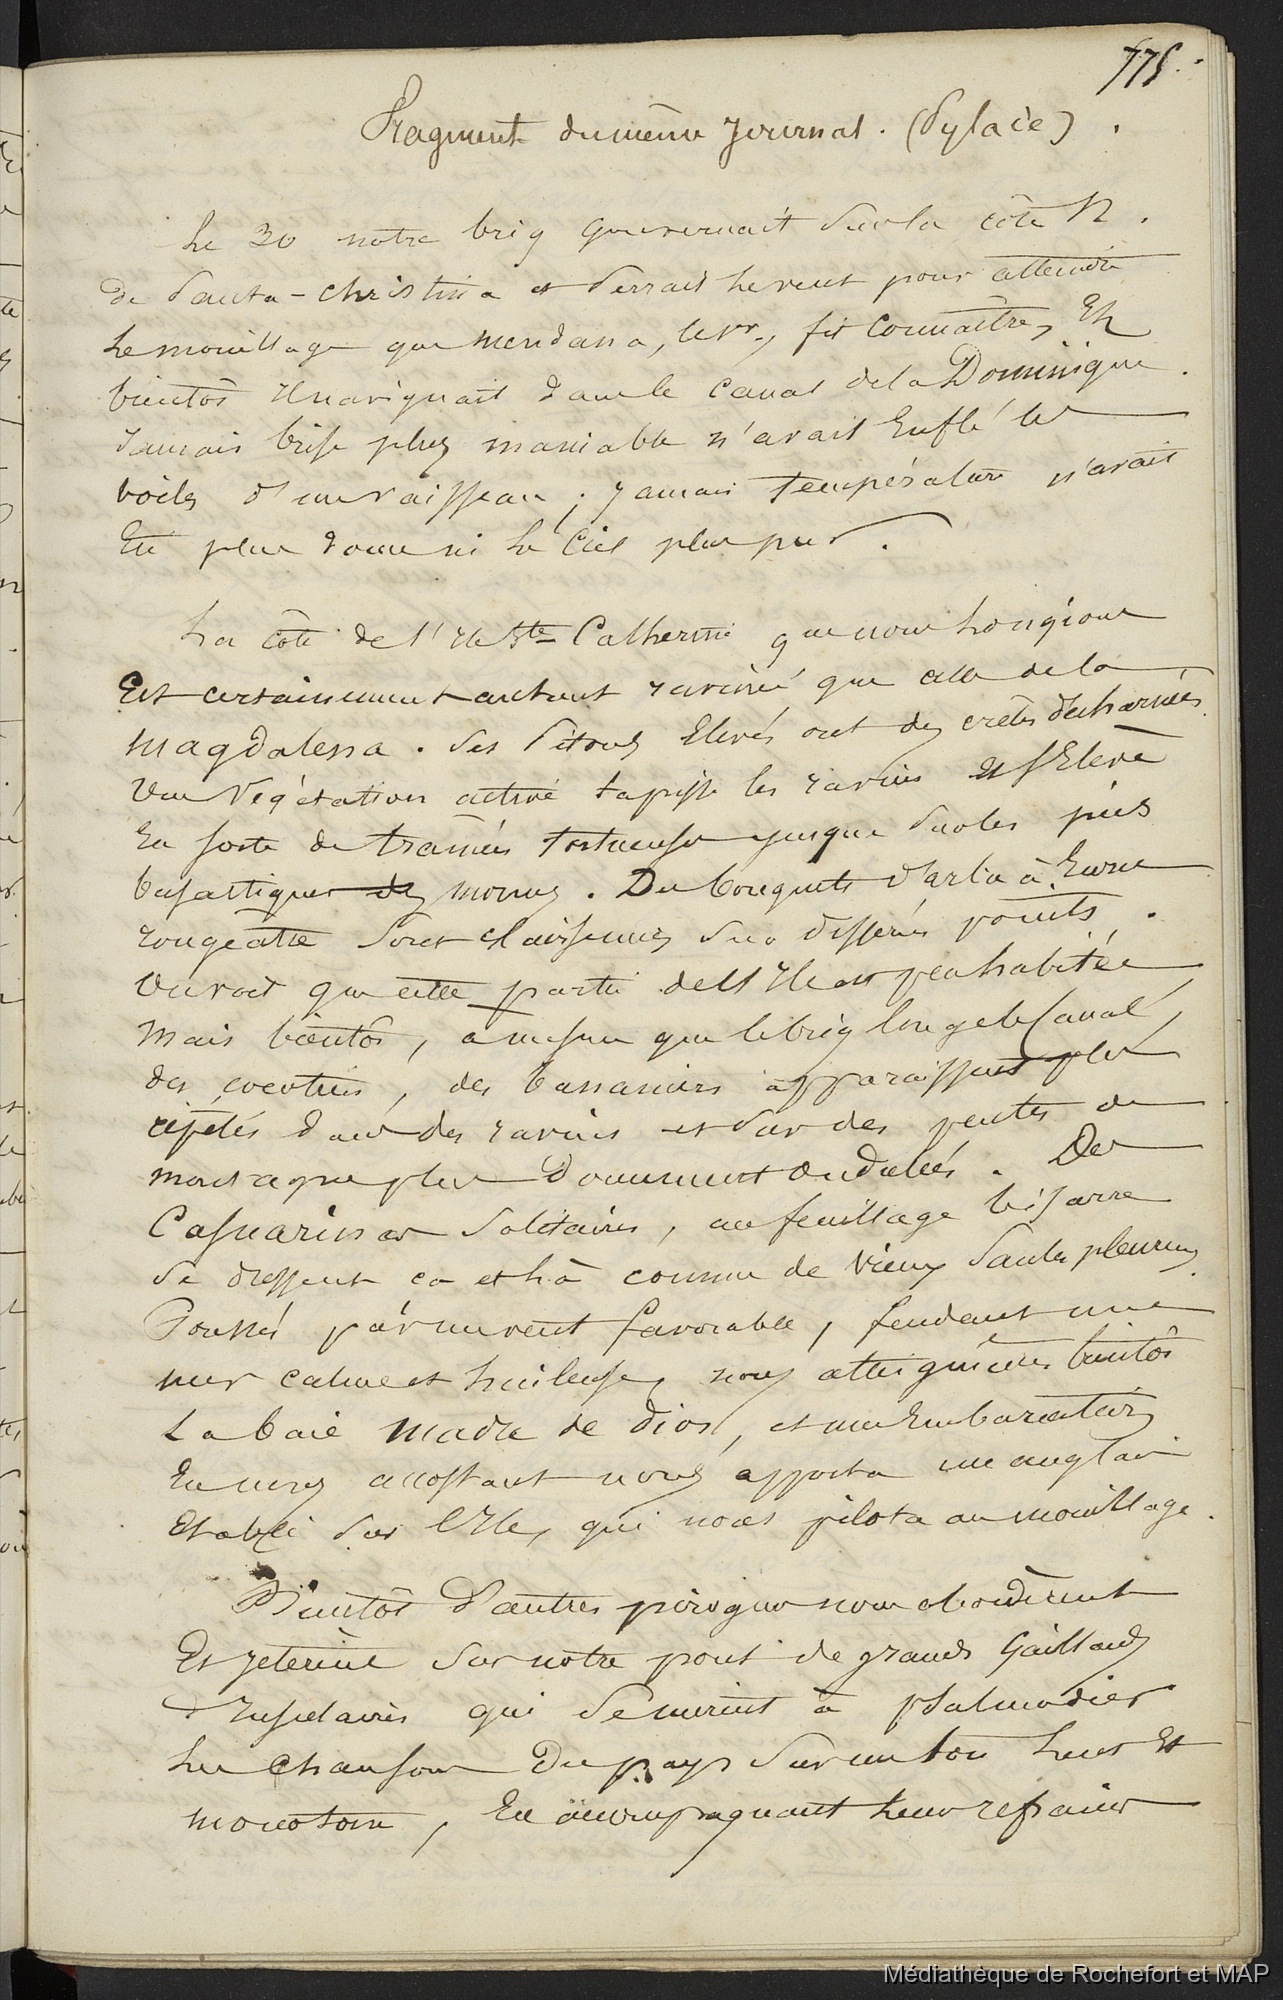 775.
Fragment du même journal. (Pylade).
Le 30 notre brig gouvernait sur la côte N.
de Santa-Christina et serrait le vent pour atteindre
le mouillage que Mendana, le 1er, fit connaître, Et
bientôt il naviguait dans le canal de la Dominique.
Jamais brise plus maniable n'avait Enflé les
voiles d'un vaisseau ; jamais température n'avait
Eté plus douce ni le Ciel plus pur.
La côte de l'Ile Ste Catherine que nous longions
Est certainement autant ravinée que celle de la
Magdalena. Ses Pitons Elevés ont des crêtes décharnées.
Une Végétation active tapisse les ravins et s'Elève
En sorte de traînées tortueuses jusque sur les pics
basaltiques des mornes. Des bouquets d'arbres à Ecorce
rougeâtre sont clairsemés sur différens points.
On voit que cette partie de l'Ile est peu habitée
Mais bientôt, à mesure que le brig longe le Canal,
des cocotiers, des bananiers apparaissent plus
répétés dans des ravins et sur des pentes de
montagne plus doucement ondulées. Des
Casuarinas solitaires, au feuillage bisarre
se dressent ça et là comme de vieux Saules pleureurs.
Poussés par un vent favorable, fendant une
mer calme et huileuse, nous atteignîmes bientôt
La baie Madre de Dios, et une Embarcation
En nous accostant nous apporta un anglais
Etabli sur l'Ile, qui nous pilota au mouillage.
Bientôt d'autres pirogues nous abordèrent
Et jetèrent sur notre pont de grands Gaillards
Insulaires qui se mirent à psalmodier
les chansons du pays sur un ton lent Et
monotone, En accompagnant leurs refrains
Médiathèque de Rochefort et MAP